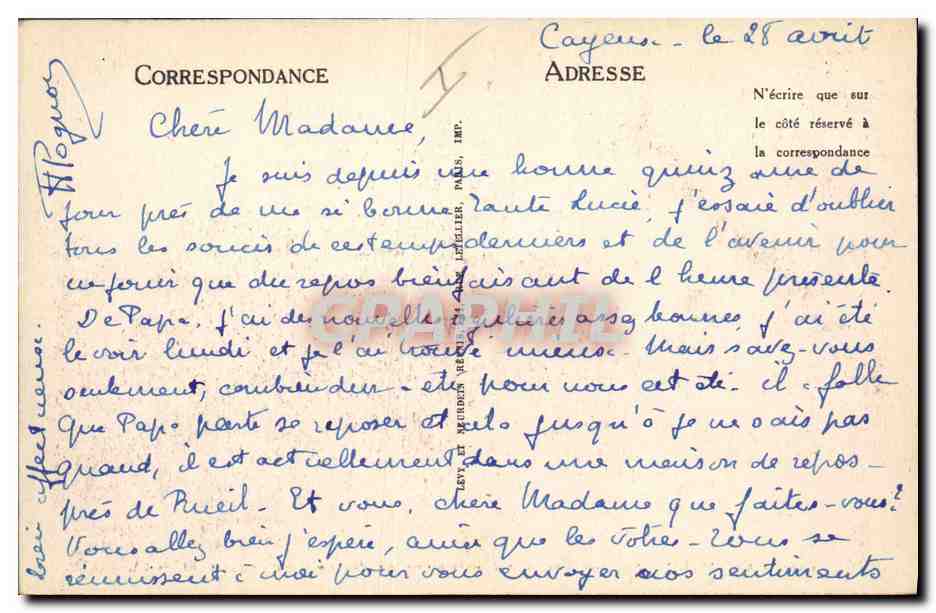 Cayeux - le 28 avril
CORRESPONDANCE
ADRESSE
N'écrire que sur
le côté réservé à
la correspondance
Chère Madame,
Je suis depuis une bonne quinzaine de
jour près de ma si bonne Tante Lucie, j'essaie d'oublier
tous les soucis de ces temps derniers et de l'avenir pour
ne jouir que du repos bienfaisant de l'heure présente.
De Papa, j'ai des nouvelles régulières assez bonnes, j'ai été
le voir lundi et je l'ai trouvé mieux. Mais savez-vous
seulement, combien dur - été pour nous cet été. il a fallu
que Papa parte se reposer et cela jusqu'à je ne sais pas
quand, il est actuellement dans une maison de repos -
près de Rueil. Et vous, chère Madame que faites-vous?
Vous allez bien j'espère, ainsi que les vôtres - Tous se
réunissent à moi pour vous envoyer nos sentiments
bien affectueux.
H Pognon
LEVY ET NEURDEIN RÉUNIS, 44, RUE LETELLIER, PARIS, IMP.
CPARPHIL